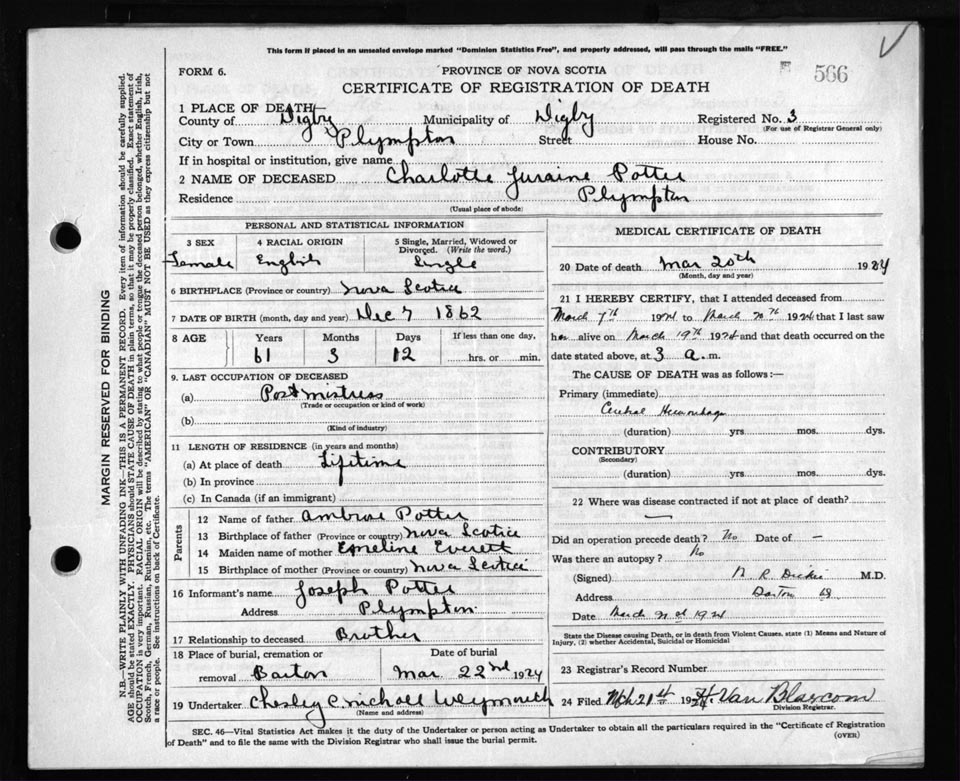 This form if placed in an unsealed envelope marked "Dominion Statistics Free", and properly addressed, will pass through the mails "FREE."
FORM 6.
PROVINCE OF NOVA SCOTIA
566
CERTIFICATE OF REGISTRATION OF DEATH
1 PLACE OF DEATH
County of Digby Municipality of Digby Registered No. 3
(For use of Registrar General only)
City or Town Plympton Street House No.
If in hospital or institution, give name
2 NAME OF DECEASED Charlotte Potter
Residence Plympton
(Usual place of abode)
PERSONAL AND STATISTICAL INFORMATION
3 SEX 4 RACIAL ORIGIN 5 Single, Married, Widowed or Divorced. (Write the word.)
Female English Single
6 BIRTHPLACE (Province or country) Nova Scotia
7 DATE OF BIRTH (month, day and year) Dec 7 1862
8 AGE Years Months Days If less than one day,
61 3 12 hrs. or min.
9. LAST OCCUPATION OF DECEASED
(a) Postmistress
(Trade or occupation or kind of work)
(b)
(Kind of industry)
11 LENGTH OF RESIDENCE (in years and months)
(a) At place of death Lifetime
(b) In province
(c) In Canada (if an immigrant)
Parents
12 Name of father Ambrose Potter
13 Birthplace of father (Province or country) Nova Scotia
14 Maiden name of mother Emeline Everett
15 Birthplace of mother (Province or country) Nova Scotia
16 Informant's name Joseph Potter
Address Plympton
17 Relationship to deceased Brother
18 Place of burial, cremation or removal Barton
Date of burial Mar 22nd 1924
19 Undertaker Chesley Weymouth
(Name and address)
MEDICAL CERTIFICATE OF DEATH
20 Date of death Mar 20th 1924
(Month, day and year)
21 I HEREBY CERTIFY, that I attended deceased from
March 7th 1924 to March 20th 1924 that I last saw
her alive on March 19th 1924 and that death occurred on the
date stated above, at 3 a.m.
The CAUSE OF DEATH was as follows:—
Primary (immediate)
Cerebral Hemorrhage
(duration) yrs mos. dys.
CONTRIBUTORY
(Secondary)
(duration) yrs. mos. dys.
22 Where was disease contracted if not at place of death?
—
Did an operation precede death? No Date of —
Was there an autopsy? No
(Signed) R. Dickie M.D.
Address Barton
Date March 1924
State the Disease causing Death, or in death from Violent Causes. state (1) Means and Nature of
Injury, (2) whether Accidental, Suicidal or Homicidal
23 Registrar's Record Number
24 Filed Mch 21st 19 H Van Blarcom
Division Registrar.
SEC. 46—Vital Statistics Act makes it the duty of the Undertaker or person acting as Undertaker to obtain all the particulars required in the "Certificate of Registration
of Death" and to file the same with the Division Registrar who shall issue the burial permit.
(OVER)
MARGIN RESERVED FOR BINDING
N.B.—WRITE PLAINLY WITH UNFADING INK—THIS IS A PERMANENT RECORD. Every item of information should be carefully supplied.
AGE should be stated EXACTLY. PHYSICIANS should STATE CAUSE OF DEATH in plain terms, so that it may be properly classified. Exact statement of
OCCUPATION is very important. RACIAL ORIGIN will be described by stating to what people or tongue the deceased person belonged, whether English, Irish,
Scotch, French, German, Russian, Ruthenian, etc. The terms "AMERICAN" OR "CANADIAN" MUST NOT BE USED as they express citizenship but not
a race or people. See instructions on back of Certificate.